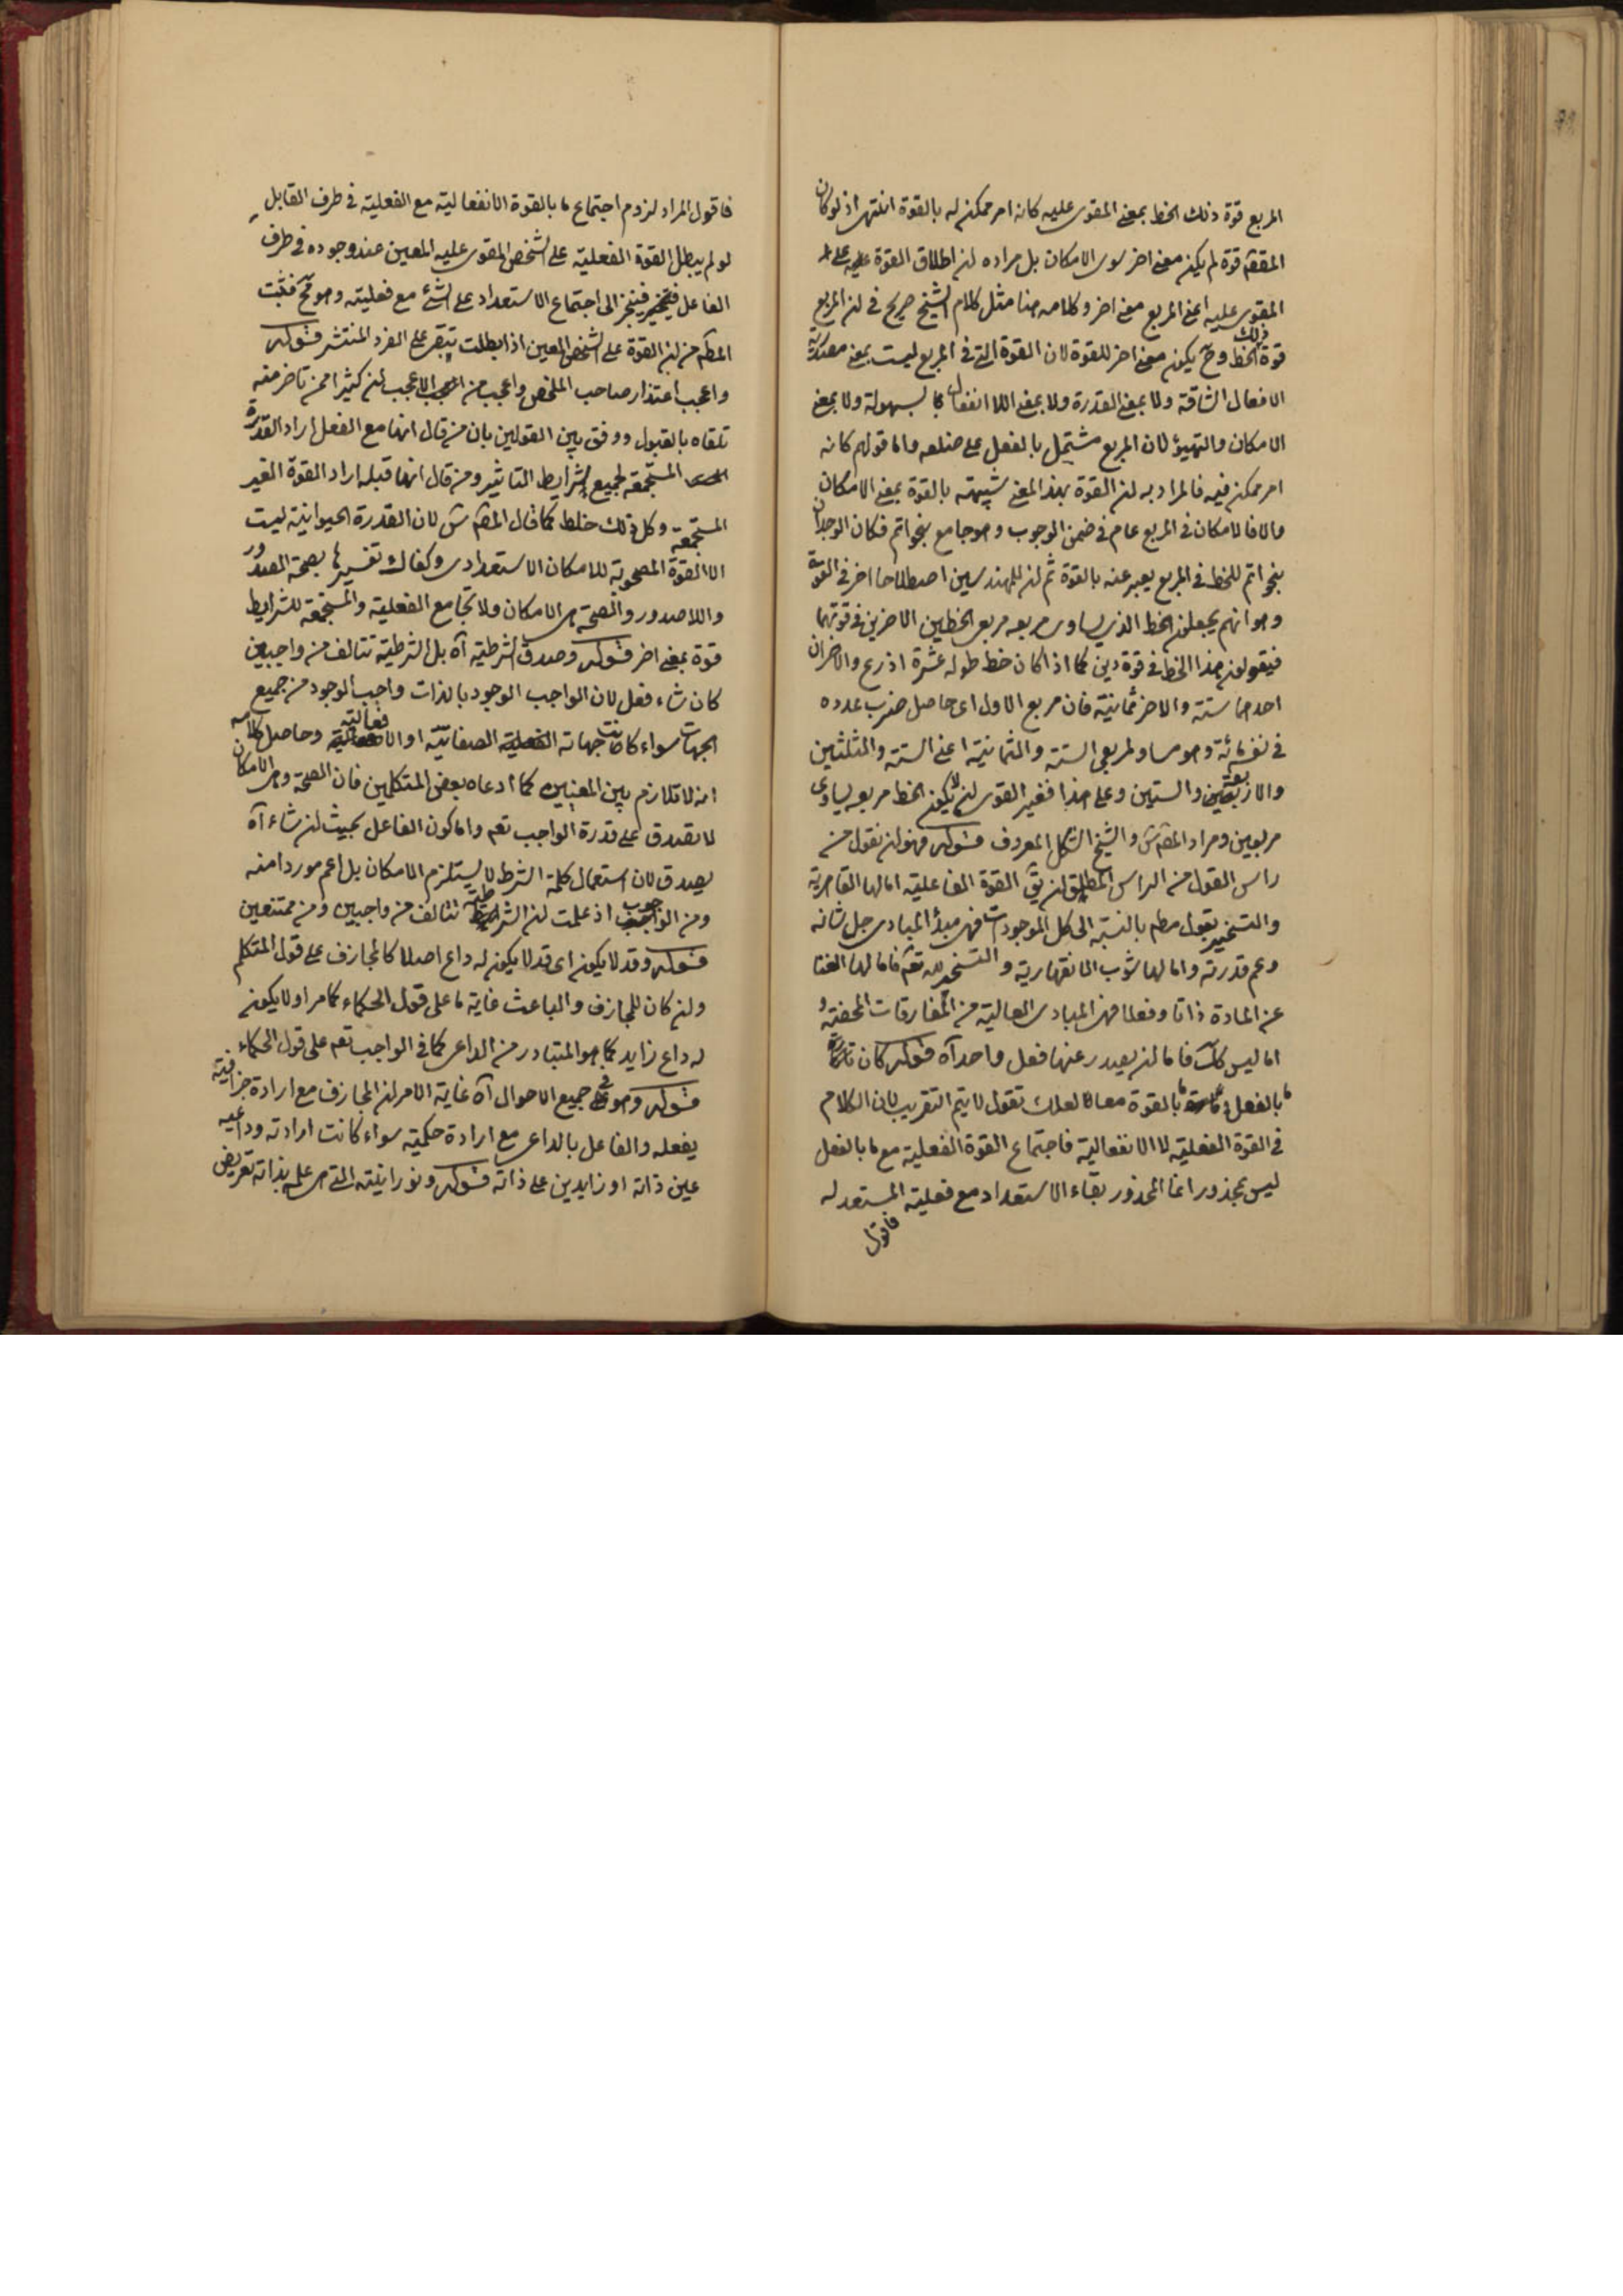 المربع قوة ذلك الخط بمعنى المقوى عليه كانه امر ممكن له بالقوة انتهى اذ لو كان
المقصم قوة لم يكن معنى اخر سوى الامكان بل مراده ان اطلاق القوة عليه على
المقوى عليه اعنى المربع معنى اخر وكلامه هنا مثل كلام الشيخ صريح في ان المربع
قوة ذلك الخط وح يكون معنى اخر للقوة لان القوة التي في المربع ليست بمعنى مصدرية
الافعال الشاقة ولا بمعنى القدرة ولا بمعنى اللا انفعال كما بسهولة ولا بمعنى
الامكان والتهيؤ لان المربع مشتمل بالفعل على ضلعه واما قولهم كانه
امر ممكن فيه فالمراد به ان القوة بهذا المعنى شبيهته بالقوة بمعنى الامكان
والا فالامكان في المربع عام في ضمن الوجوب وهو جامع بنحو اتم فكان الوجدان
بنحو اتم للخط في المربع يعبر عنه بالقوة ثم ان للمهندسين اصطلاحا اخر في القوة
وهو انهم يجعلون الخط الذي يساوى مربعه مربعى الخطين الاخرين في قوتهما
فيقولون هذا الخط في قوة ذين كما اذا كان خط طوله عشرة اذرع والاخران
احدهما ستة والاخر ثمانية فان مربع الاول اى حاصل ضرب عدده
في نفسه مائة وهو مساو لمربعى الستة والثمانية اعنى الستة والثلثين
والاربعة والستين وعلى هذا فغير القوى ان لا يكون الخط مربعه يساوى
مربعين ومراد المقص س والشيخ الشكل المعروف قوله فهو ان نقول من
راس القول من الراس المطلق ان يق القوة الفاعلية اما لها القاهرية
والتسخير بقول مطم بالنسبة الى كل الموجودات فهى مبدأ المبادى جل شانه
وعم قدرته واما لها شوب الانقهارية والتسخير لله تعه فاما لها الغنا
عن المادة ذاتا وفعلا فهى المبادى العالية من المفارقات المحضة و
اما ليس كك فاما ان يصدر عنها فعل واحد آه قوله كان
ما بالفعل و ما بالقوة معا لعلك تقول لا يتم التقريب لان الكلام
في القوة الفعلية لا الانفعالية فاجتماع القوة الفعلية مع ما بالفعل
ليس بمحذور انما المحذور بقاء الاستعداد مع فعلية المستعد له
فاقول
فاقول المراد لزوم اجتماع ما بالقوة الانفعالية مع الفعلية في طرف القابل
لو لم يبطل القوة الفعلية على الشخص المقوى عليه المعين عند وجوده في طرف
الفاعل فينجر الى اجتماع الاستعداد على الشئ مع فعليته وهو مح فثبت
المطم من ان القوة على الشخص المعين اذا بطلت تبقى على الفرد المنتشر قوله
واعجب اعتذار صاحب الملخص واعجب من العجب الاعجب ان كثيرا ممن تاخر منه
تلقاه بالقبول ووفق بين القولين بان من قال انها مع الفعل اراد القدرة
المستجمعة لجميع شرايط التاثير ومن قال انها قبله اراد القوة الغير
المستجمعة وكل ذلك خلط كما قال المقص س لان القدرة الحيوانية ليست
الا القوة المصحوبة للامكان الاستعدادى وكفاك تفسيرها بصحة الصدور
واللاصدور والصحة هى الامكان ولا تجامع الفعلية والمستجمعة للشرايط
قوة بمعنى اخر قوله وصدق الشرطية آه بل الشرطية تتالف من واجبين
كان شاء فعل لان الواجب الوجود بالذات واجب الوجود من جميع
الجهات سواء كانت جهاته الصفاتية او الافعالية وحاصل كلامه
انه لا تلازم بين المعنيين كما ادعاه بعض المتكلمين فان الصحة وهى الامكان
لا تصدق على قدرة الواجب تعه واما كون الفاعل بحيث ان شاء آه
يصدق لان استعمال كلمة الشرط لا يستلزم الامكان بل اعم موردا منه
ومن الوجوب اذ علمت ان الشرطية تتالف من واجبين ومن ممتنعين
قوله وقد لا يكون اى قد لا يكون له داع اصلا كالمجازف على قول المتكلم
وان كان للمجازف والباعث غاية ما على قول الحكماء كما مر او لا يكون
له داع زايد كما هو المتبادر من الداعى كما في الواجب تعه على قول الحكماء
قوله وهو في جميع الاحوال آه غاية الامر ان المجازف مع ارادة جزافية
يفعله والفاعل بالداعى مع ارادة حكمية سواء كانت ارادته وداعيه
عين ذاته او زايدين على ذاته قوله ونورانيته التي هى علمه بذاته تعريض